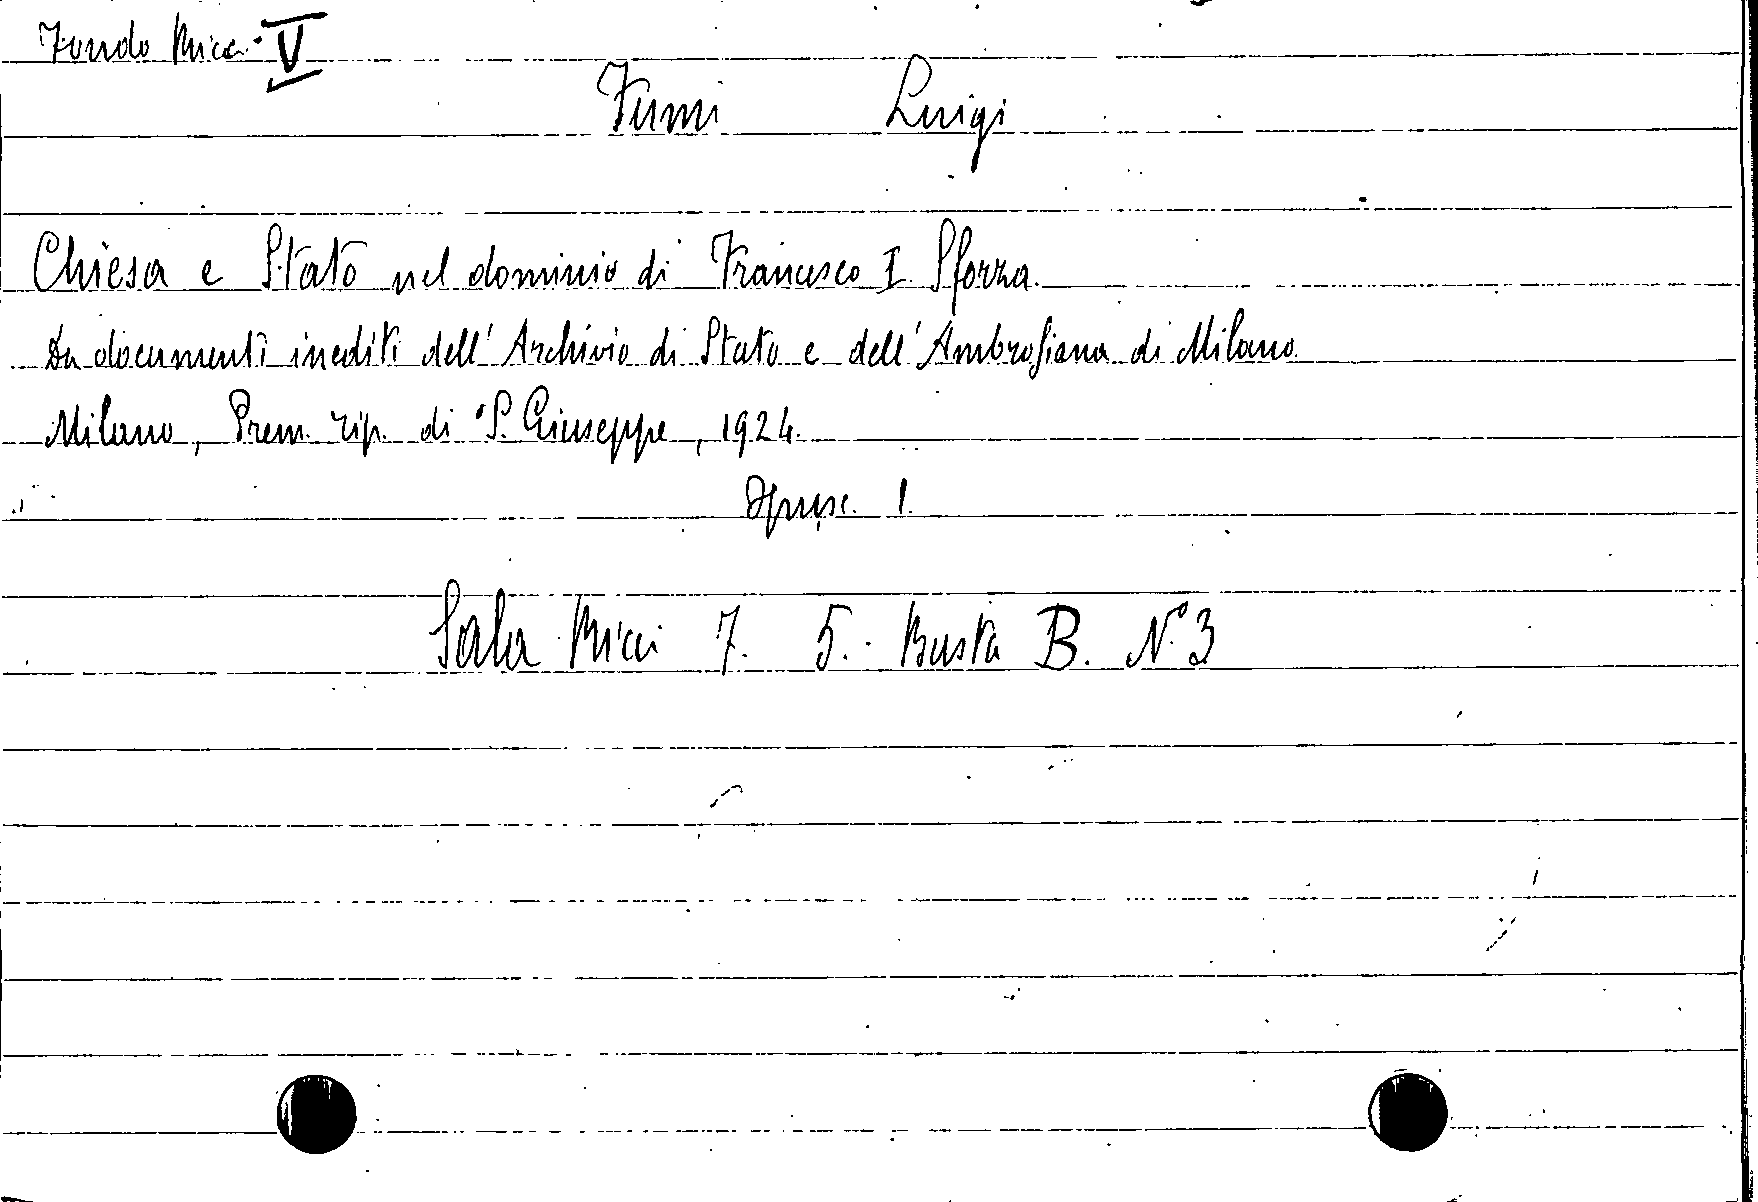 Fondo Ricci V
Fumi Luigi
Chiesa e Stato nel dominio di Francesco I Sforza.
Da documenti inediti dell'Archivio di Stato e dell'Ambrosiana di Milano
Milano, Prem. tip. di S. Giuseppe, 1924.
Opusc. 1.
Sala Ricci 7. 5. Busta B. N. 3